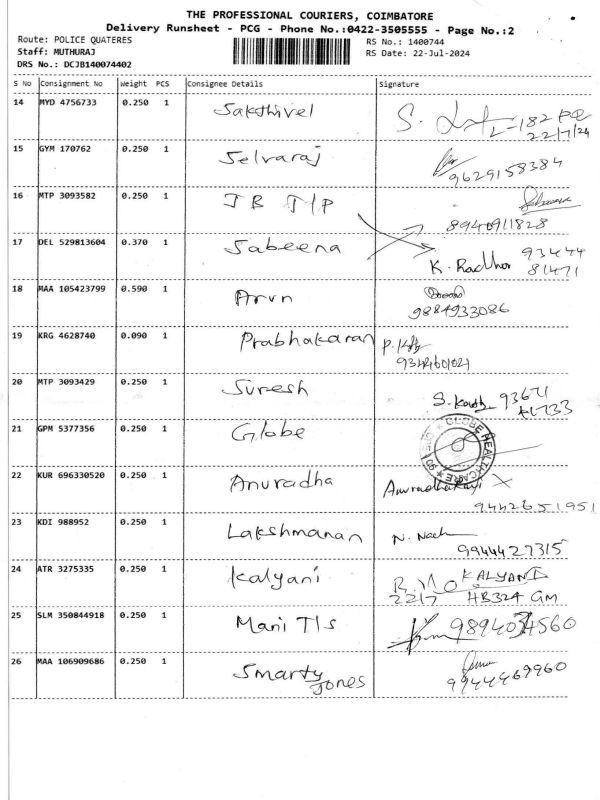 THE PROFESSIONAL COURIERS, COIMBATORE
Delivery Runsheet - PCG - Phone No.:0422-3505555 - Page No.:2
Route: POLICE QUATERES RS No.: 1400744
Staff: MUTHURAJ RS Date: 22-Jul-2024
DRS No.: DCJB140074402
S No Consignment No Weight PCS Consignee Details Signature
14 MYD 4756733 0.250 1 Sakthivel
22/7/24
15 GYM 170762 0.250 1 Selvaraj
9629158384
16 MTP 3093582 0.250 1 JB T/P
8940911828
17 DEL 529813604 0.370 1 Sabeena 93444
K. Radhor 81471
18 MAA 105423799 0.590 1 Arun
9884933086
19 KRG 4628740 0.090 1 Prabhakaran
20 MTP 3093429 0.250 1 Suresh 93671
21 GPM 5377356 0.250 1 Globe
GLOBE HEALTHCARE
22 KUR 696330520 0.250 1 Anuradha
9442651951
23 KDI 988952 0.250 1 Lakshmanan
9944427315
24 ATR 3275335 0.250 1 Kalyani KALYANI
22/7 HB324 GM
25 SLM 350844918 0.250 1 Mani T/s
26 MAA 106909686 0.250 1 Smarty
Jones 9944469960